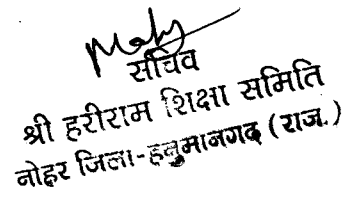 सचिव
श्री हरीराम शिक्षा समिति
नोहर जिला-हनुमानगढ़ (राज.)